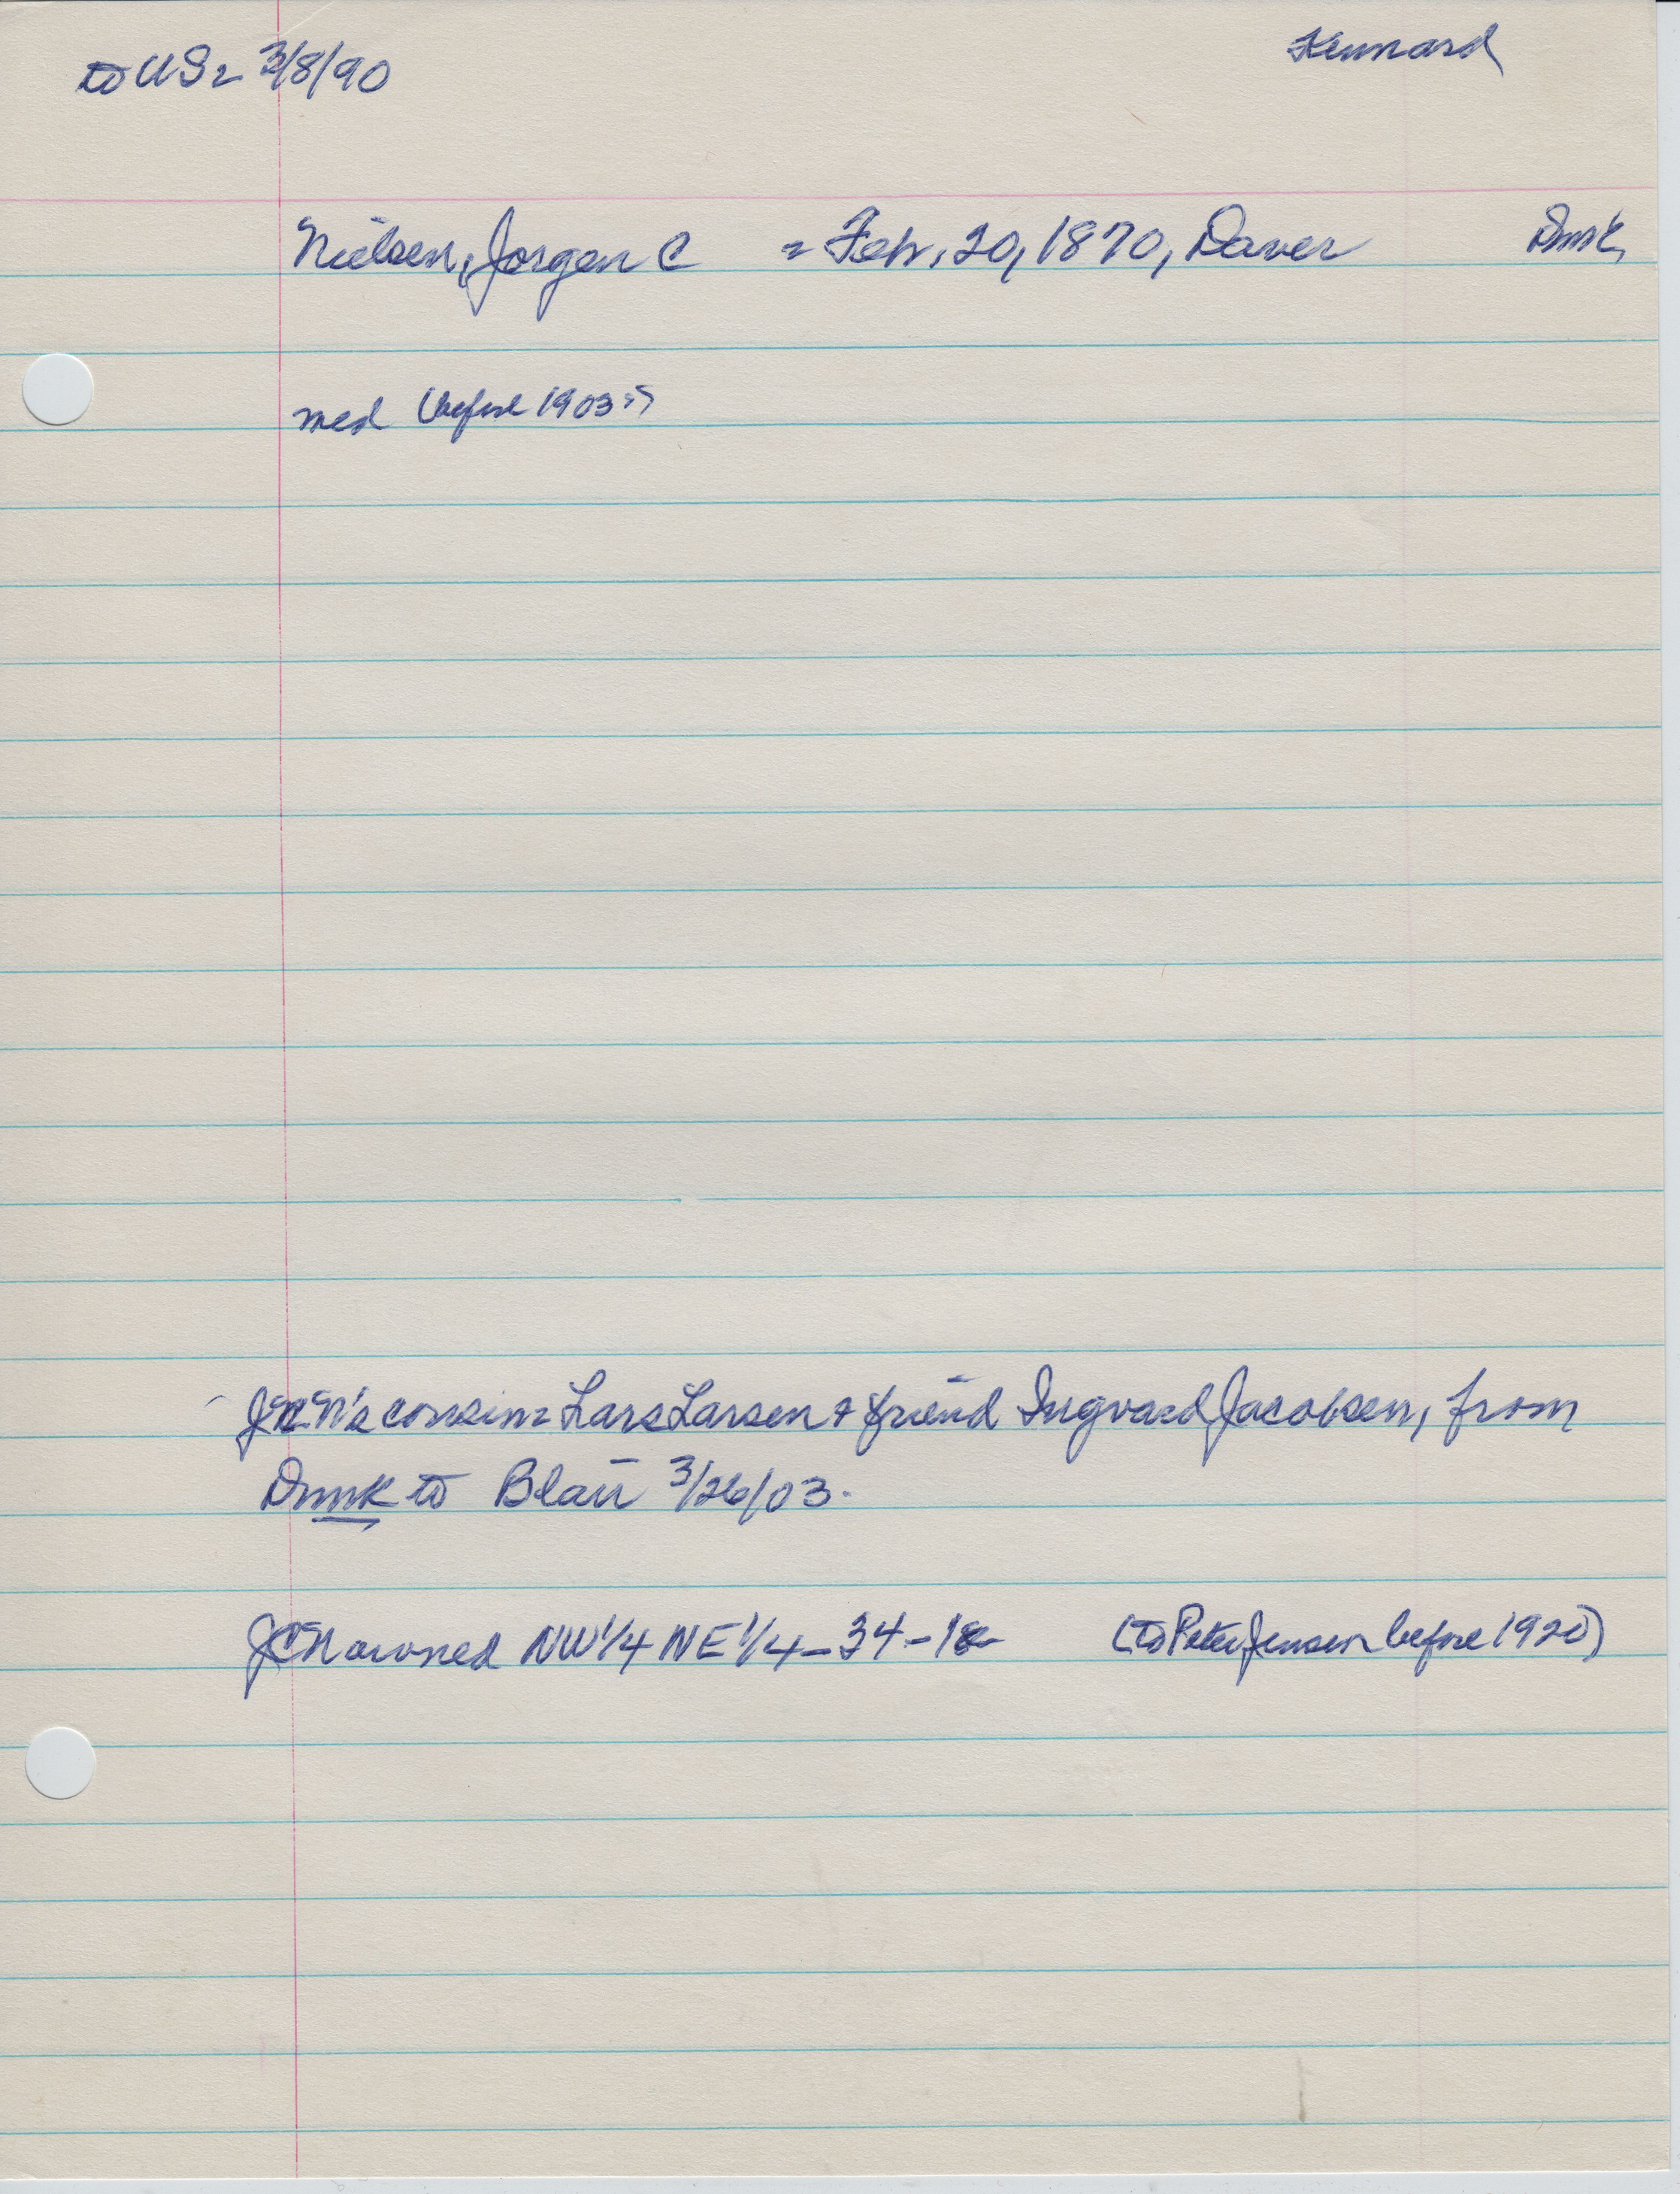 to US = 3/8/90
Kennard
Nielsen, Jorgen C = Feb. 20, 1870, Daver Dmk,
med (before 1903 = )
JCN's cousin = Lars Larsen & friend Ingvard Jacobsen, from
Dmk to Blair 3/26/03.
JCN owned NW 1/4 NE 1/4 - 34 - 18 (to Peter Jensen before 1920)